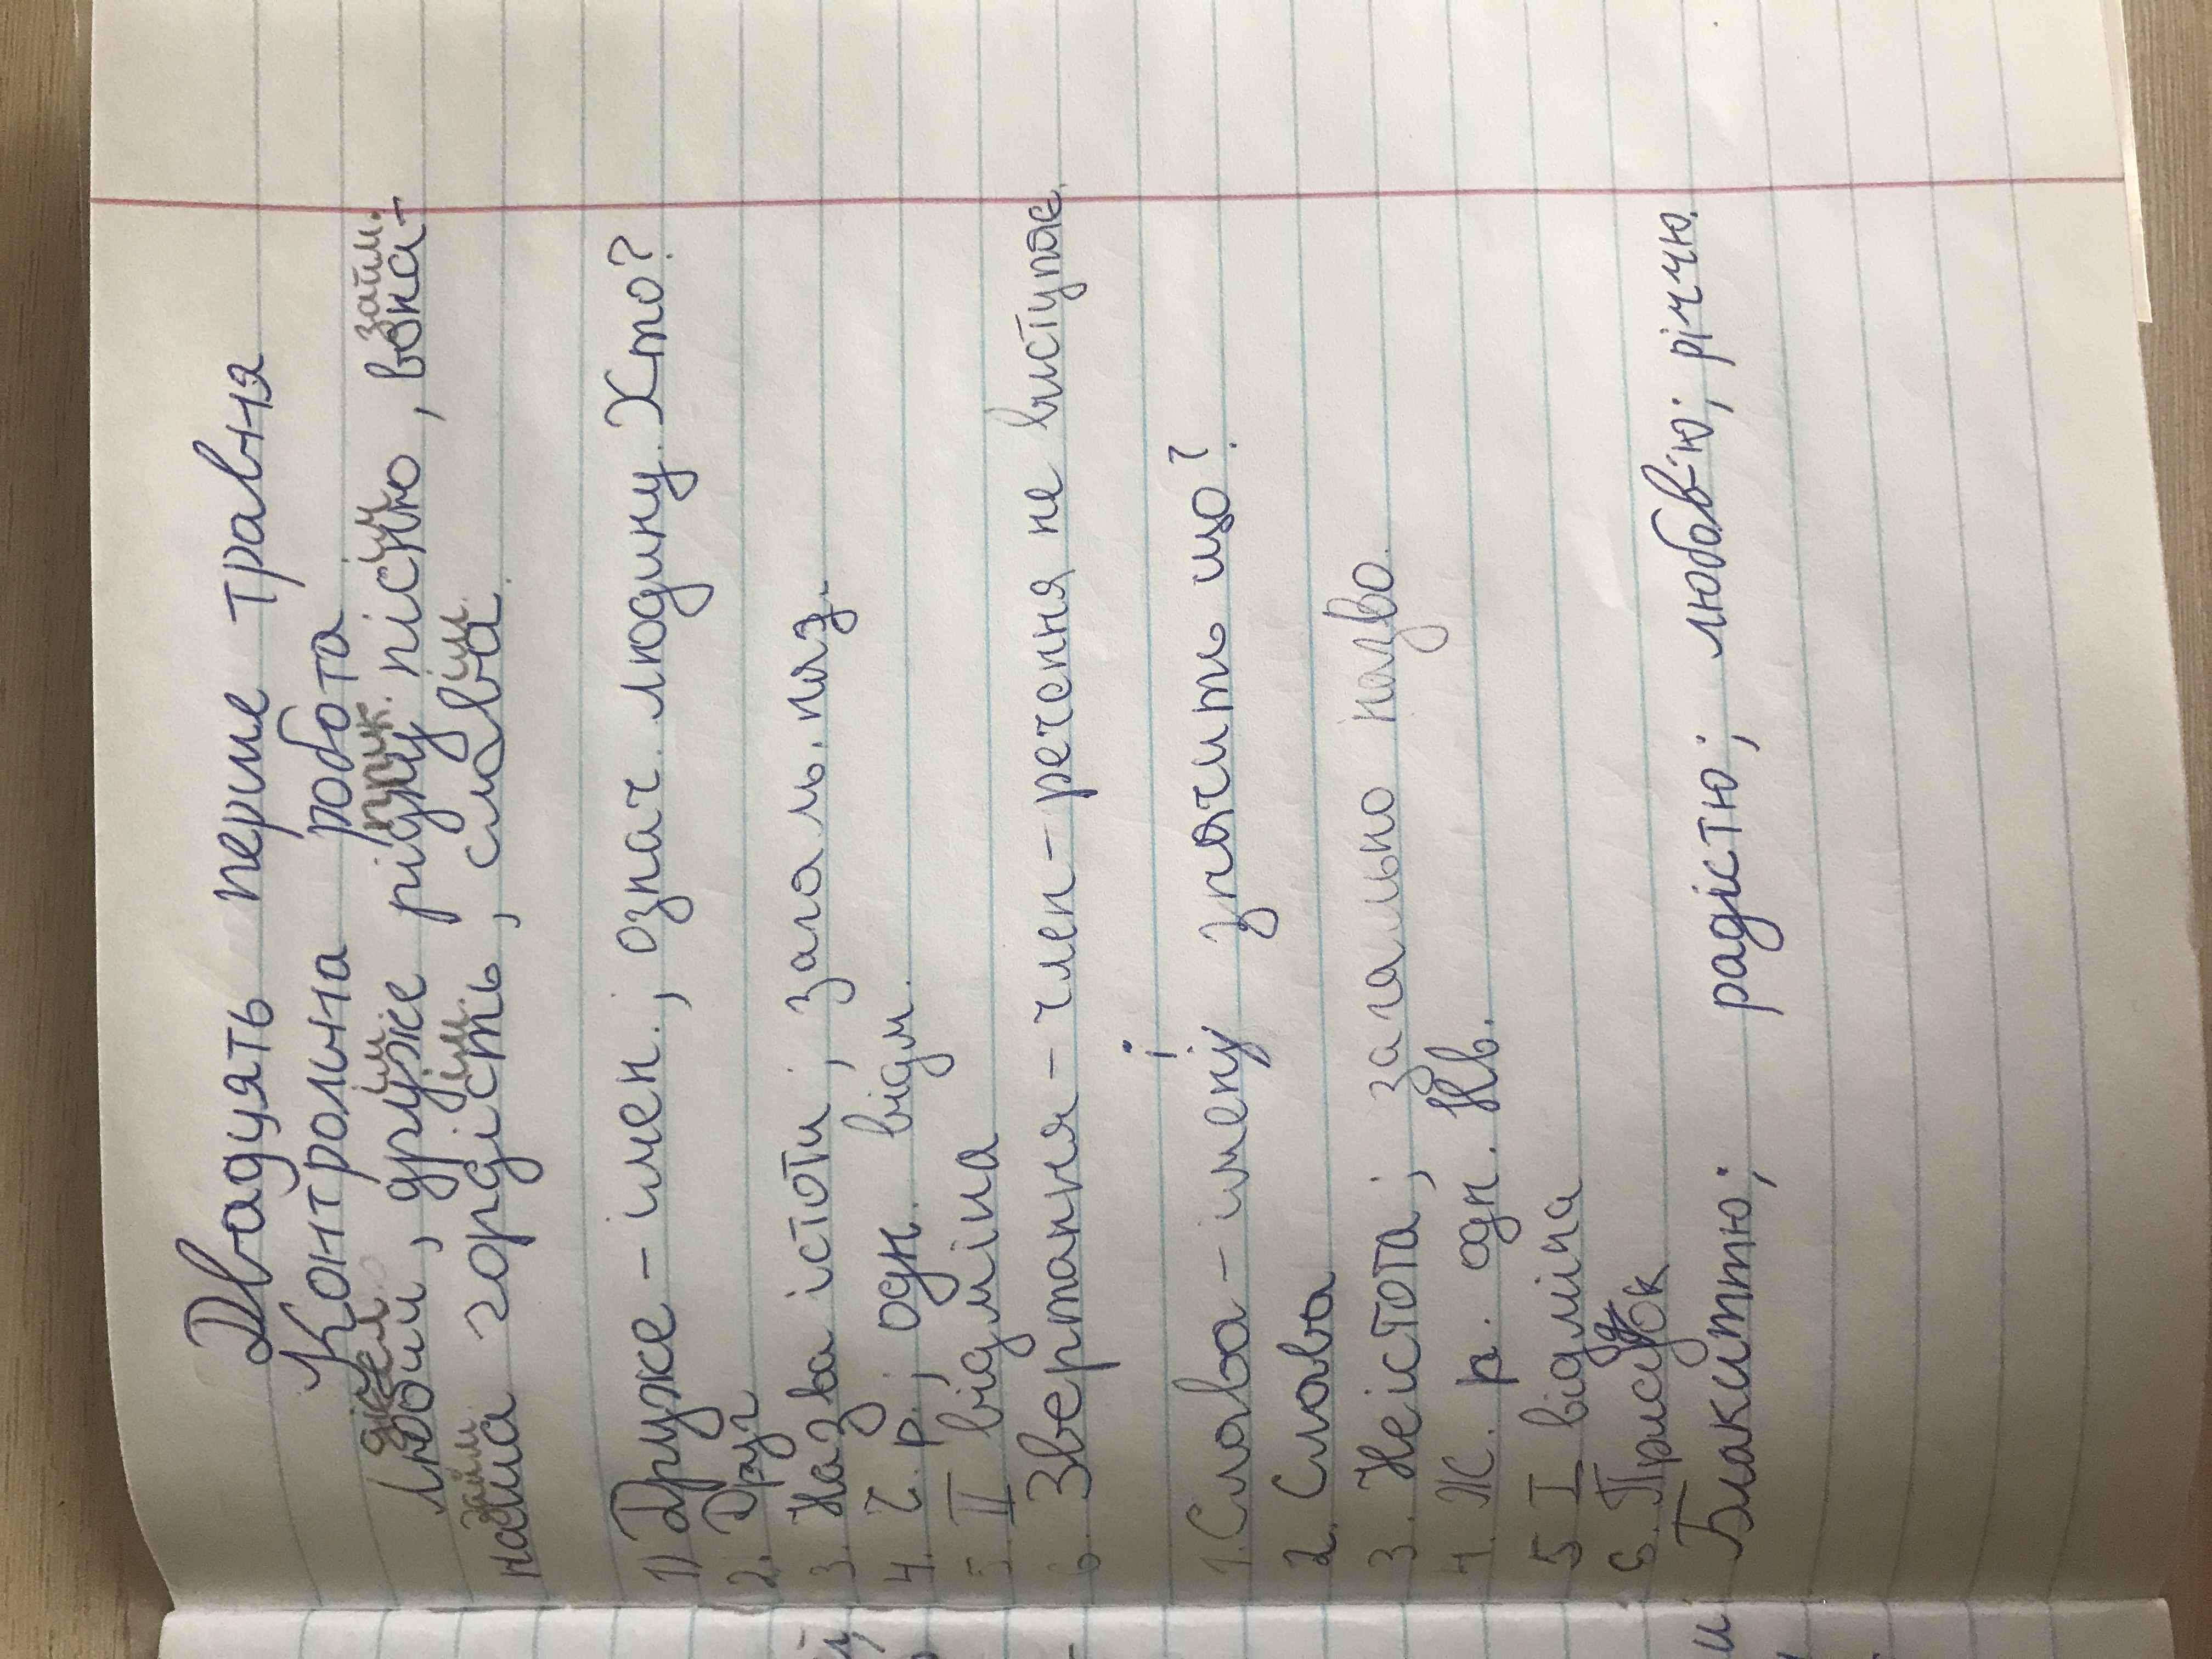 Двадцять перше травня
Контрольна робота
дієсл. ім. прик. ім займ.
Люби, друже рідну пісню, вона-
займ. ім. ім.
наша гордість, слава.
1) Друже - імен.; означ. людину. Хто?
2. Друг
3. Назва істоти; загаль. наз.
4. Ч. р.; одн. відм.
5. II відміна
6. Звертання - член-речення не виступає.
1. Слава - іменіу значить що?
2. Слава
3. Неістота; загально назва.
4. Ж. р. одн. Нв.
5 I відміна
6. Присудок
Блакиттю; радістю; любов'ю; річчю.